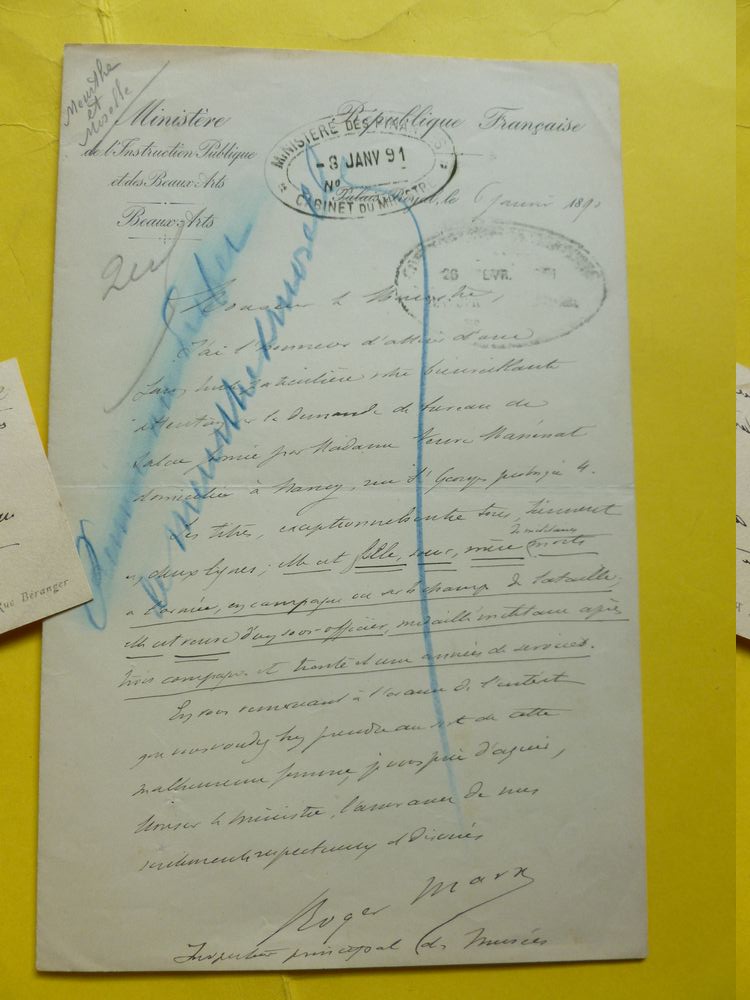 Meurthe
et
Moselle
Ministère
de l'Instruction Publique
et des Beaux-Arts
Beaux-Arts
République Française
MINISTÈRE DES FINANCES
-8 JANV 91
N°
CABINET DU MINISTRE
Palais-Royal, le 6 janvier 1891
26 FEVR.
Monsieur le Ministre,
J'ai l'honneur d'attirer d'une
façon toute particulière votre bienveillante
attention sur la demande de bureau de
tabac formée par Madame Veuve
domiciliée à Nancy, rue St Georges prolongée 4.
Ses titres, exceptionnels entre tous, tiennent
en deux lignes; elle est fille, sœur, mère de militaires morts
à l'armée, en campagne ou sur le champ de bataille;
elle est veuve d'un sous-officier, médaillé militaire après
trois campagnes et trente et une années de services.
En vous remerciant à l'avance de l'intérêt
que vous voudrez bien prendre au sort de cette
malheureuse femme, je vous prie d'agréer,
Monsieur le Ministre, l'assurance de mes
sentiments respectueux et dévoués
Roger Marx
Inspecteur principal des Musées
Meurthe & Moselle
Rue Béranger